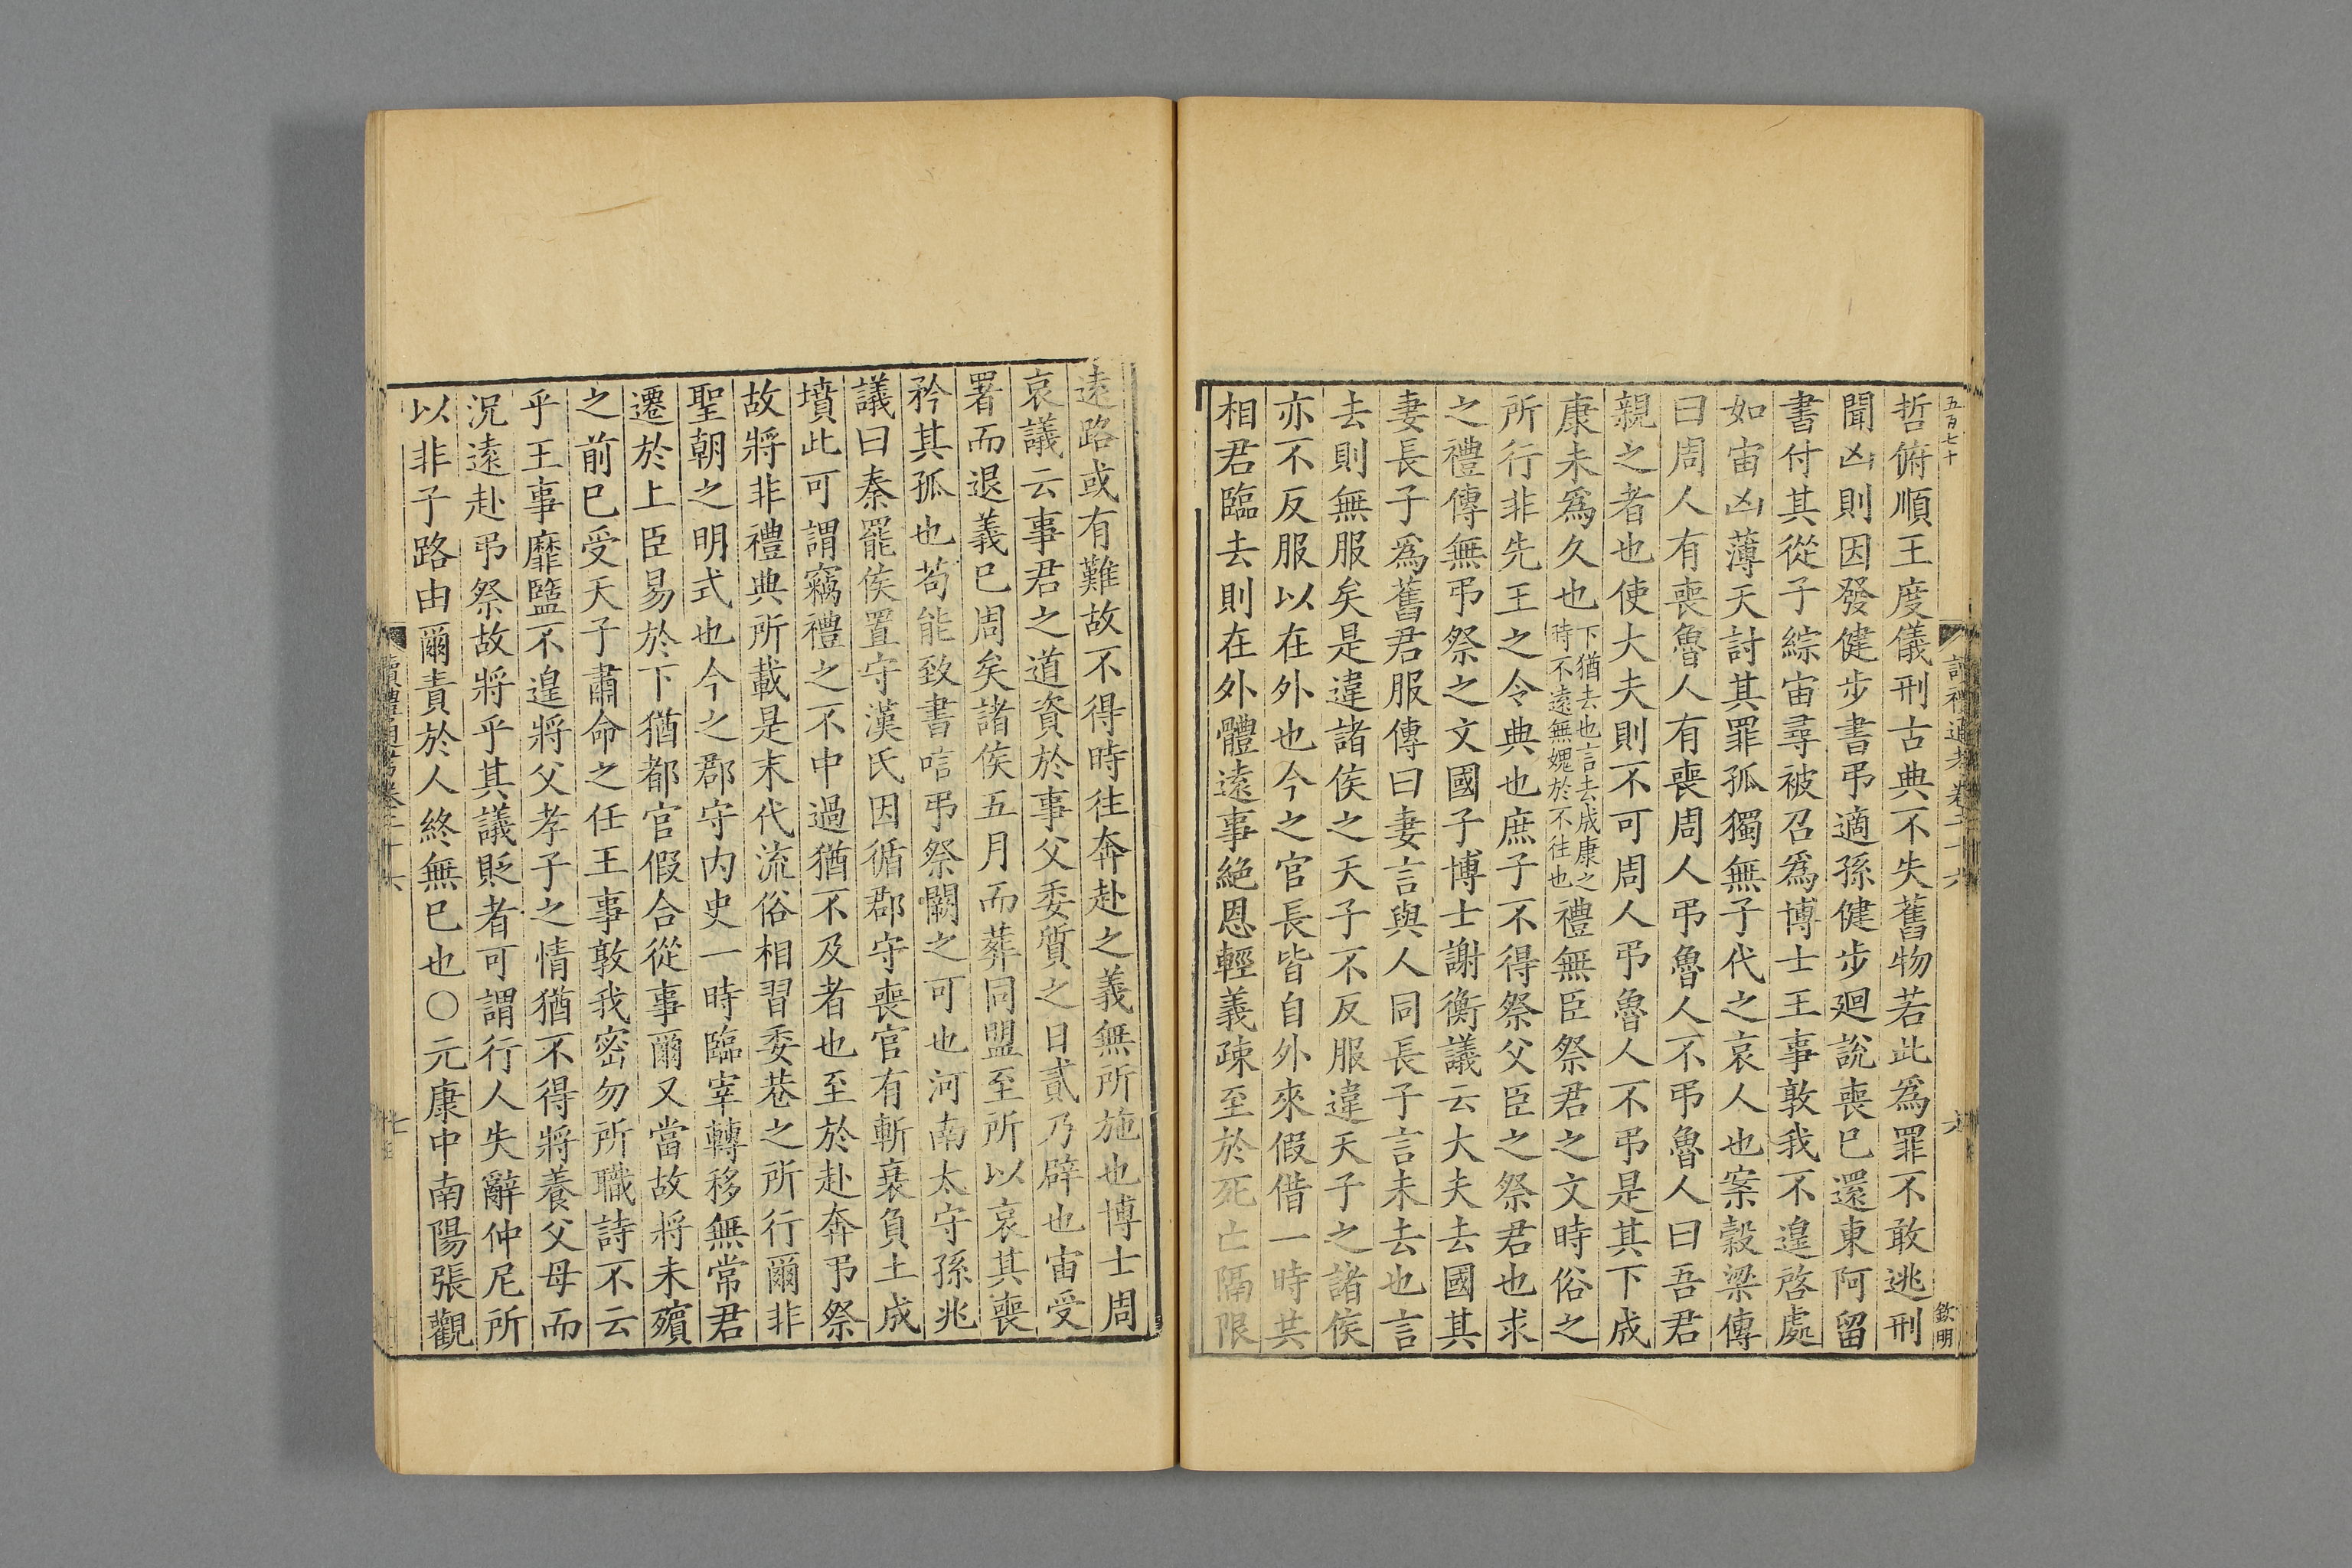 五百七十
讀禮通考卷二十六
六
欽明
哲俯順王度儀刑古典不失舊物若此爲罪不敢逃刑
聞凶則因發健步書弔適孫健步廻說喪巳還東阿留
書付其從子綜宙尋被召爲博士王事敦我不遑啓處
如宙凶薄天討其罪孤獨無子代之哀人也案穀梁傳
曰周人有喪魯人有喪周人弔魯人不弔魯人曰吾君
親之者也使大夫則不可周人弔魯人不弔是其下成
康未爲久也下猶去也言去成康之時不遠無媿於不往也禮無臣祭君之文時俗之
所行非先王之令典也庶子不得祭父臣之祭君也求
之禮傳無弔祭之文國子博士謝衡議云大夫去國其
妻長子爲舊君服傳曰妻言與人同長子言未去也言
去則無服矣是違諸侯之天子不反服違天子之諸侯
亦不反服以在外也今之官長皆自外來假借一時共
相君臨去則在外體遠事絕恩輕義疎至於死亡隔限
遠路或有難故不得時往奔赴之義無所施也博士周
哀議云事君之道資於事父委質之日貳乃辟也宙受
署而退義巳周矣諸侯五月而葬同盟至所以哀其喪
矜其孤也苟能致書唁弔祭闕之可也河南太守孫兆
議曰秦罷侯置守漢氏因循郡守喪官有斬衰負土成
墳此可謂竊禮之不中過猶不及者也至於赴奔弔祭
故將非禮典所載是末代流俗相習委巷之所行爾非
聖朝之明式也今之郡守內史一時臨宰轉移無常君
遷於上臣易於下猶都官假合從事爾又當故將未殯
之前巳受天子肅命之任王事敦我密勿所職詩不云
乎王事靡盬不遑將父孝子之情猶不得將養父母而
況遠赴弔祭故將乎其議貶者可謂行人失辭仲尼所
以非子路由爾責於人終無巳也○元康中南陽張觀
讀禮通考卷二十六
七